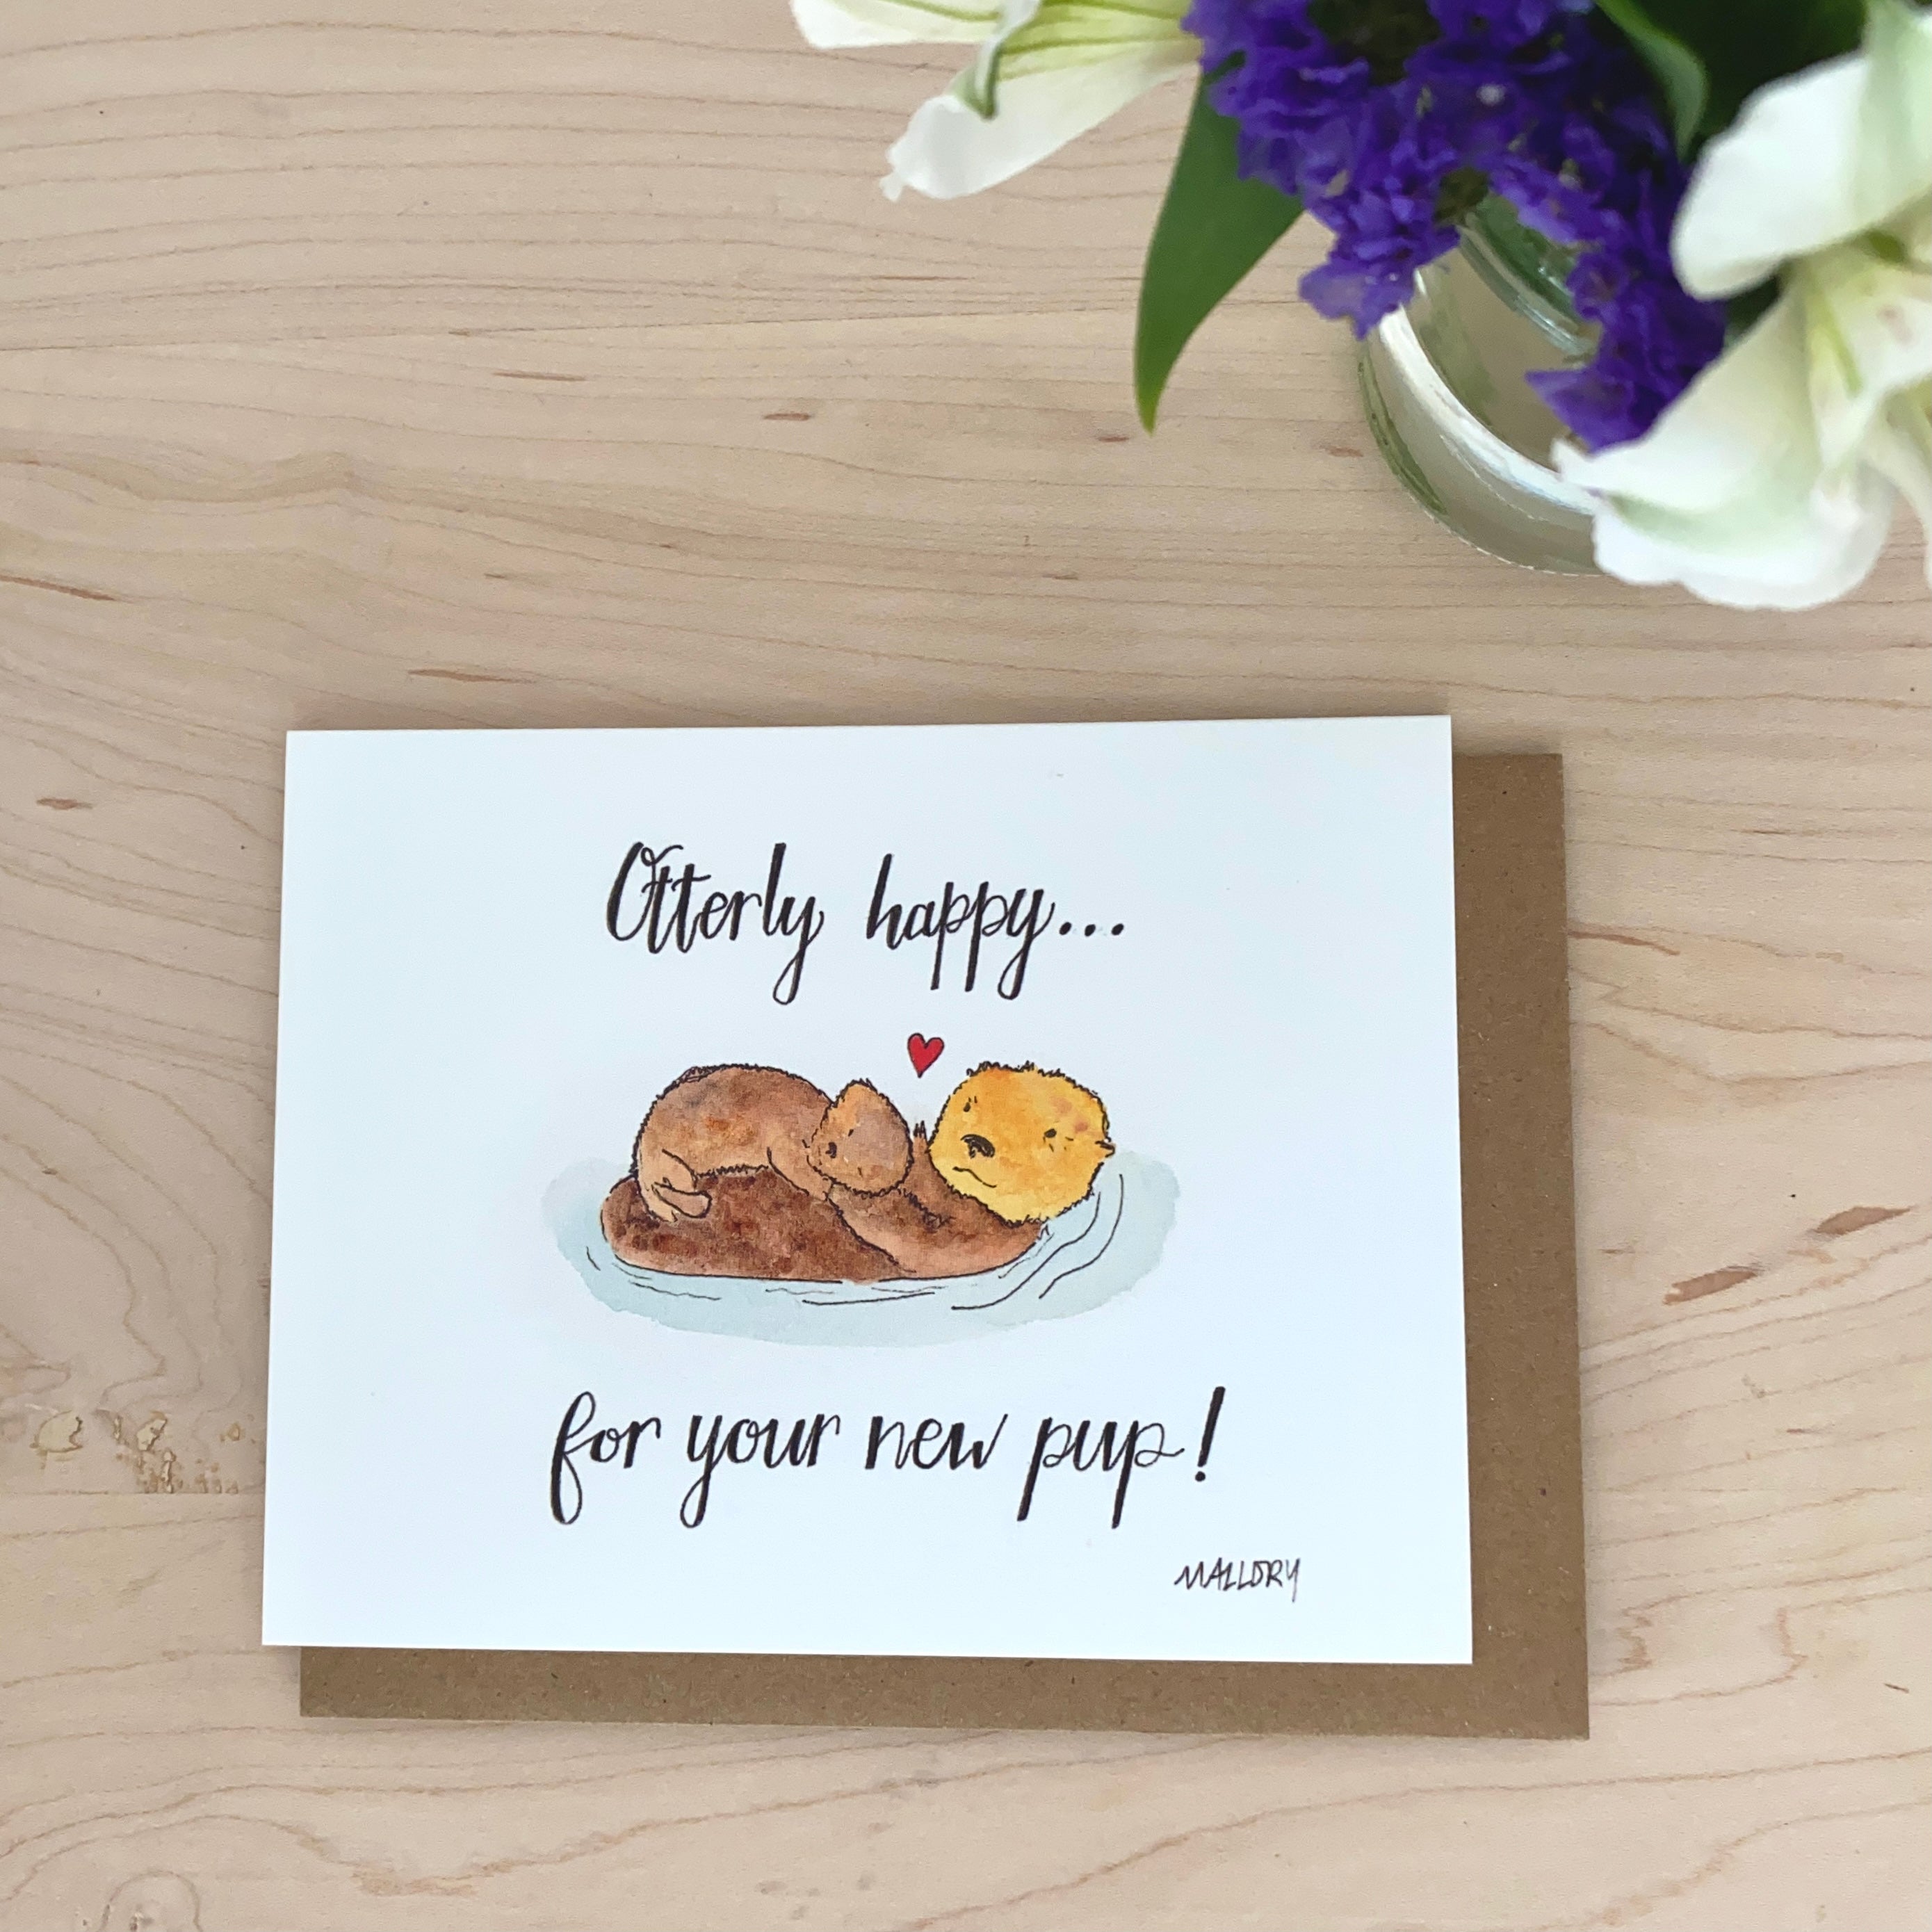 Otterly happy...
for your new pup!
MALLORY